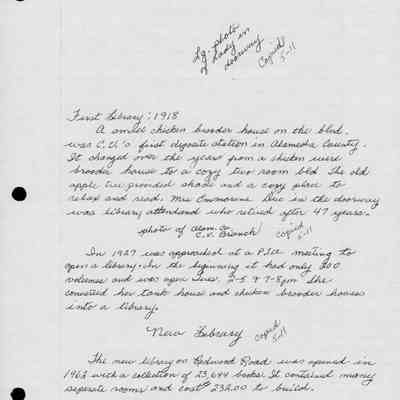 Lg. photo
of Lady in
doorway
Copied
5-11
First Library: 1918
A small chicken brooder house on the blvd.
was C.V.'s first deposite station in Alameda County.
It changed over the years from a chicken were
brooder house to a cozy two room bld The old
apple tree provided shade and a cozy place to
relax and read. Mrs in the doorway
was library attendand who retired after 47 years.
photo of Alam. Co.
C.V. Branch
copied
5-11
In 1927 was approached at a P.T.A meeting to
open a library. In the beginning it had only 200
volumes and was open Tues. 2-5 & 7-8 pm She
converted her tank house and chicken brooder houses
into a library.
New Library
copied
5-11
The new library on Redwood Road was opened in
1962 with a collection of 23,644 books. It contained many
seperate rooms and cost $ 232.00 to build.